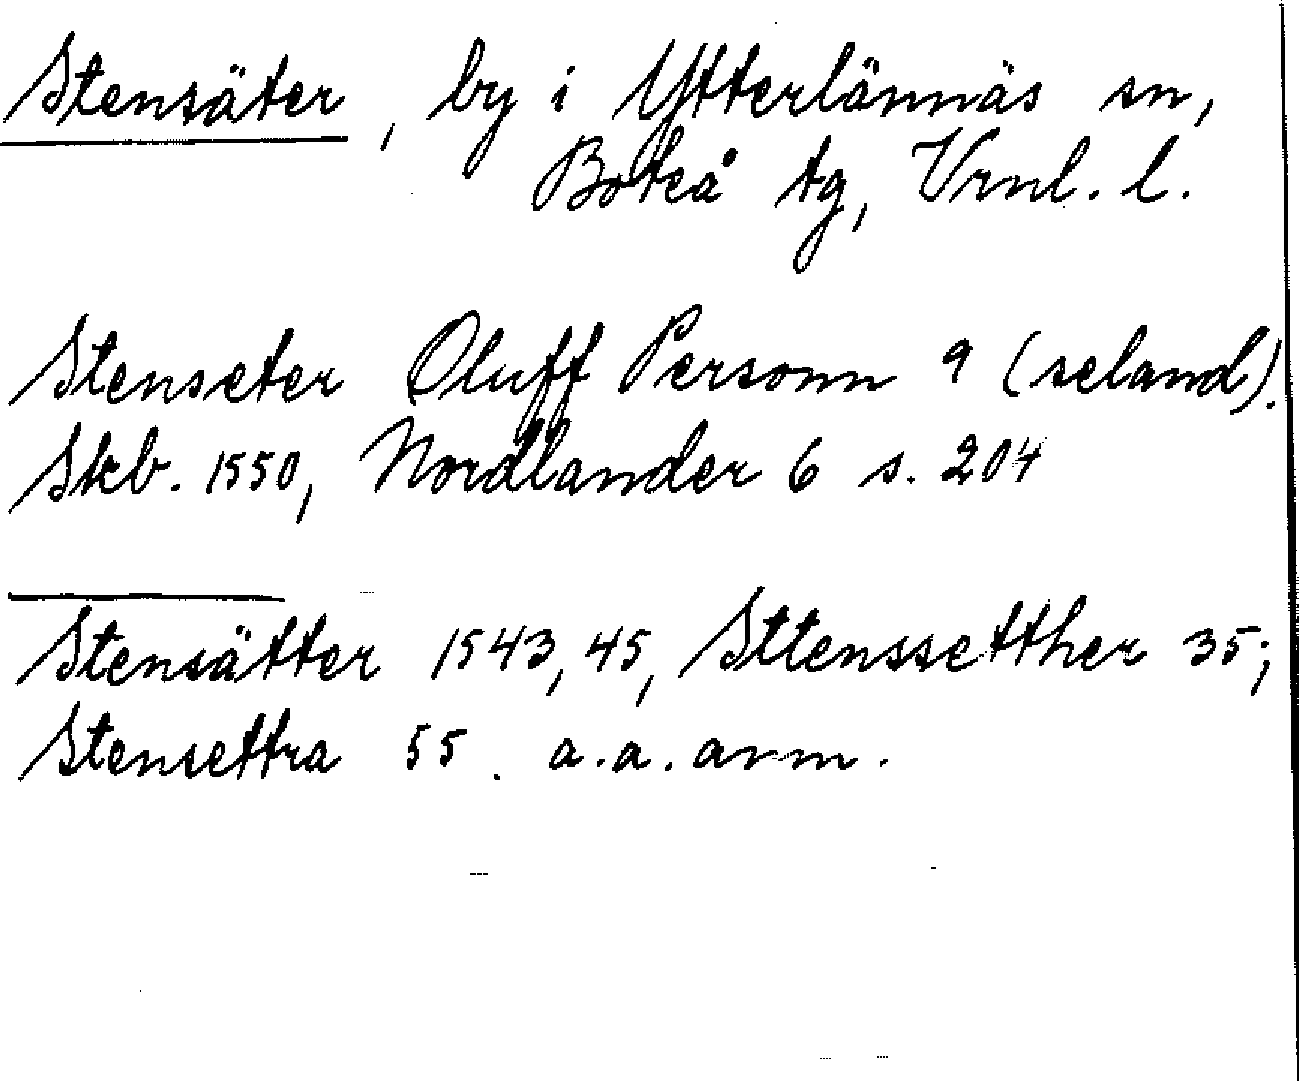 Stensäter, by i Ytterlännäs sn,
Boteå tg, Vrnl. l.
Stenseter Oluff Personn 9 (seland).
Skb. 1550, Nordlander 6 s. 204
Stensätter 1543, 45, Sttenssetther 35;
Stensettra 55. a.a. anm.